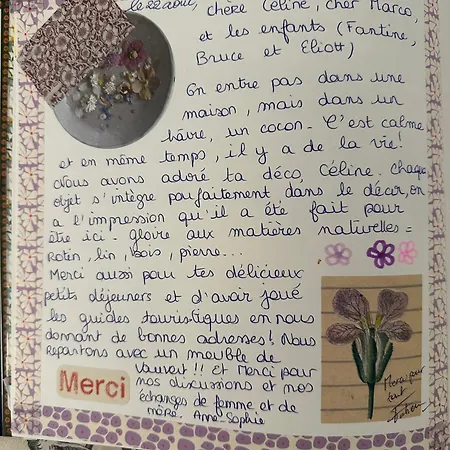 le 22 août,
chère Céline, cher Marco,
et les enfants (Fantine,
Bruce et Eliott)
On entre pas dans une
maison, mais dans un
hâvre, un cocon. C'est calme
et en même temps, il y a de la vie!
Nous avons adoré ta déco, Céline. Chaque
objet s'intègre parfaitement dans le décor, on
a l'impression qu'il a été fait pour
être ici. gloire aux matières naturelles =
Rotin, lin, bois, pierre...
Merci aussi pour tes délicieux
petits déjeuners et d'avoir joué
les guides touristiques en nous
donnant de bonnes adresses! Nous
repartons avec un meuble de
Vauvert!! et Merci pour
nos discussions et nos
échanges de femme et de
mère. Anne-Sophie
Merci
Merci pour
tout